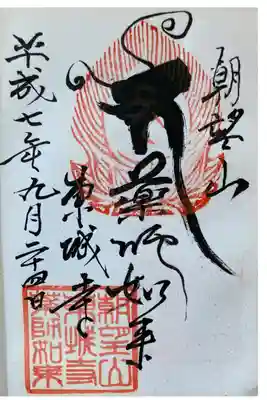 朝望山
藥師如来
東城寺
平成七年九月二十四日
朝望山
東城寺
藥師如來